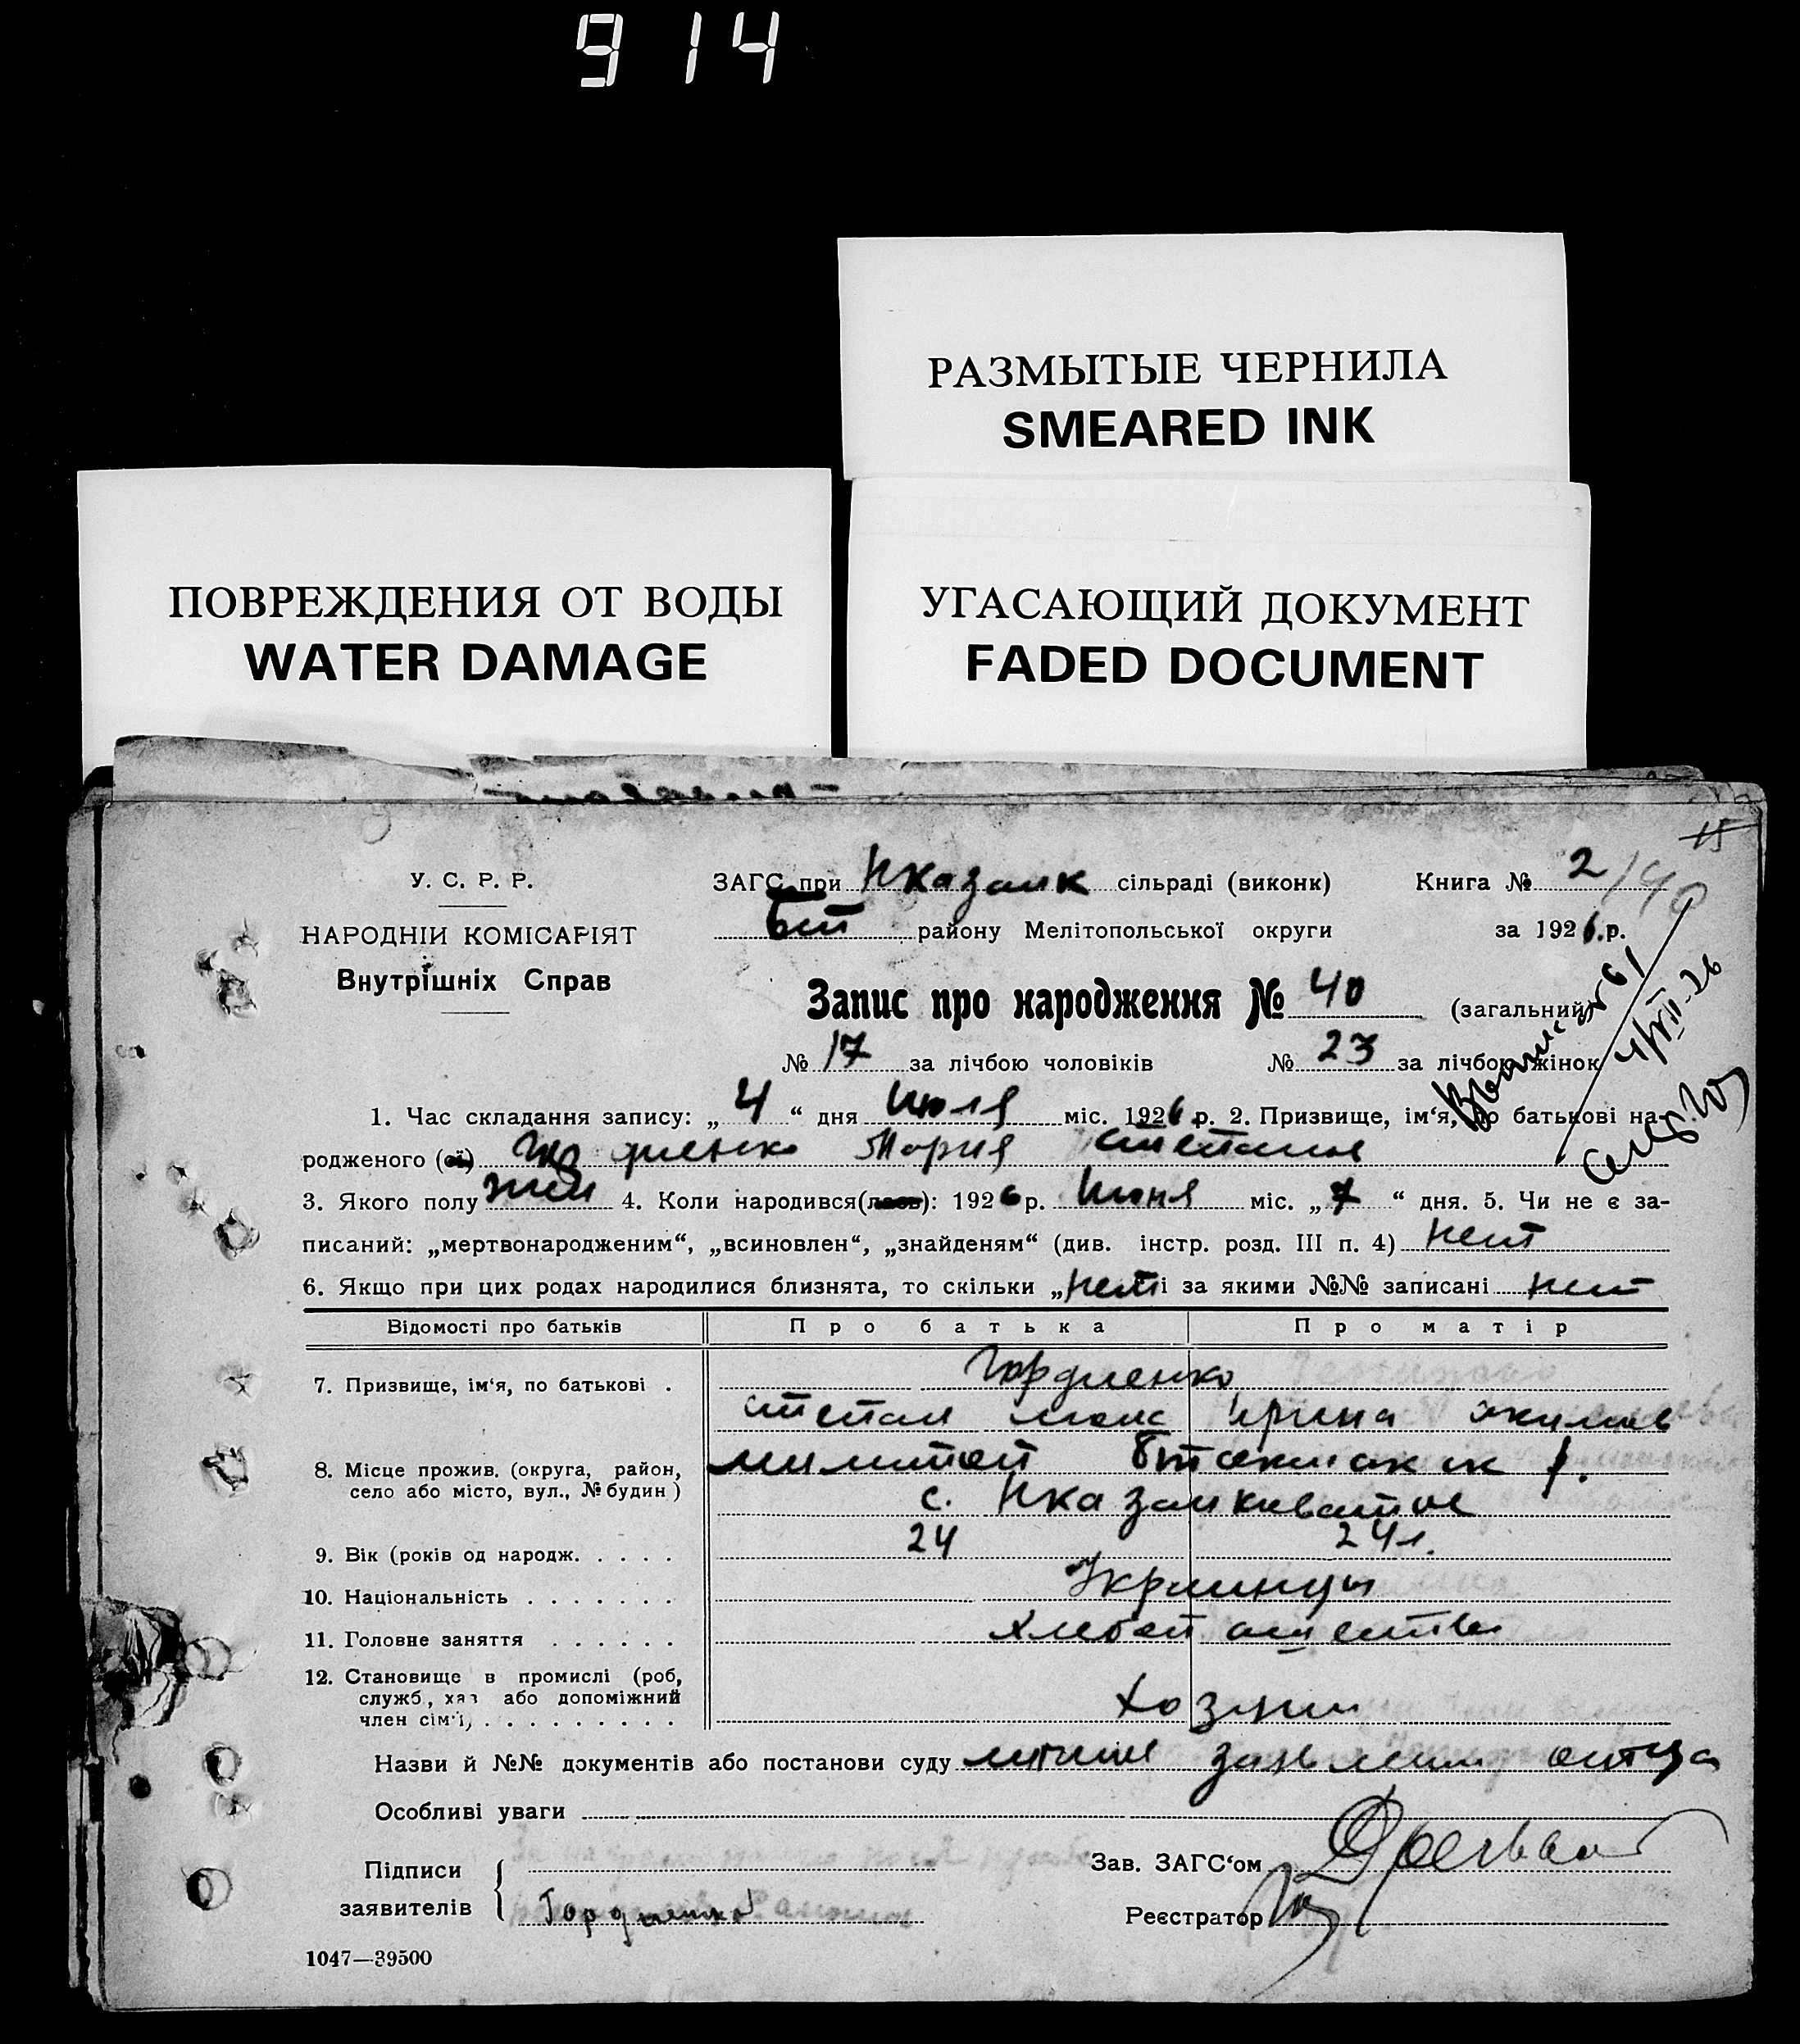 914
РАЗМЫТЫЕ ЧЕРНИЛА
SMEARED INK
ПОВРЕЖДЕНИЯ ОТ ВОДЫ
WATER DAMAGE
УГАСАЮЩИЙ ДОКУМЕНТ
FADED DOCUMENT
15
У. С. Р. Р.
НАРОДНІЙ КОМІСАРІЯТ
Внутрішніх Справ
ЗАГС при сільраді (виконк) Книга № 2/40
району Мелітопольської округи за 1926.р.
Запис про народження № 40 (загальний)
№ 17 за лічбою чоловіків № 23 за лічбою жінок
1. Час складання запису: „ 4 “ дня Июля міс. 1926 р. 2. Призвище, ім‘я, по батькові на-
родженого (ої) Гордиенко Мария Степанов
3. Якого полу жен 4. Коли народився(лась): 1926 р. Июня міс. „ 7 “ дня. 5. Чи не є за-
писаний: „мертвонародженим“, „всиновлен“, „знайденям“ (див. інстр. розд. III п. 4) нет
6. Якщо при цих родах народилися близнята, то скільки „нет і за якими №№ записані нет
Відомості про батьків Про батька Про матір
7. Призвище, ім‘я, по батькові . Гордиенко
Степан Ирина Акимов
8. Місце прожив. (округа, район,
село або місто, вул., № будин )
с.
9. Вік (років од народж. . . . . 24 24 л.
10. Національність . . . . . . . Украинцы
11. Головне заняття . . . . . .
12. Становище в промислі (роб,
служб, хаз або допоміжний
член сім‘ї, . . . . . . . . . Хозяин
Назви й №№ документів або постанови суду личное заявление отца
Особливі уваги
Підписи
заявителів Гордиенко
Зав. ЗАГС‘ом
Реєстратор
1047—39500